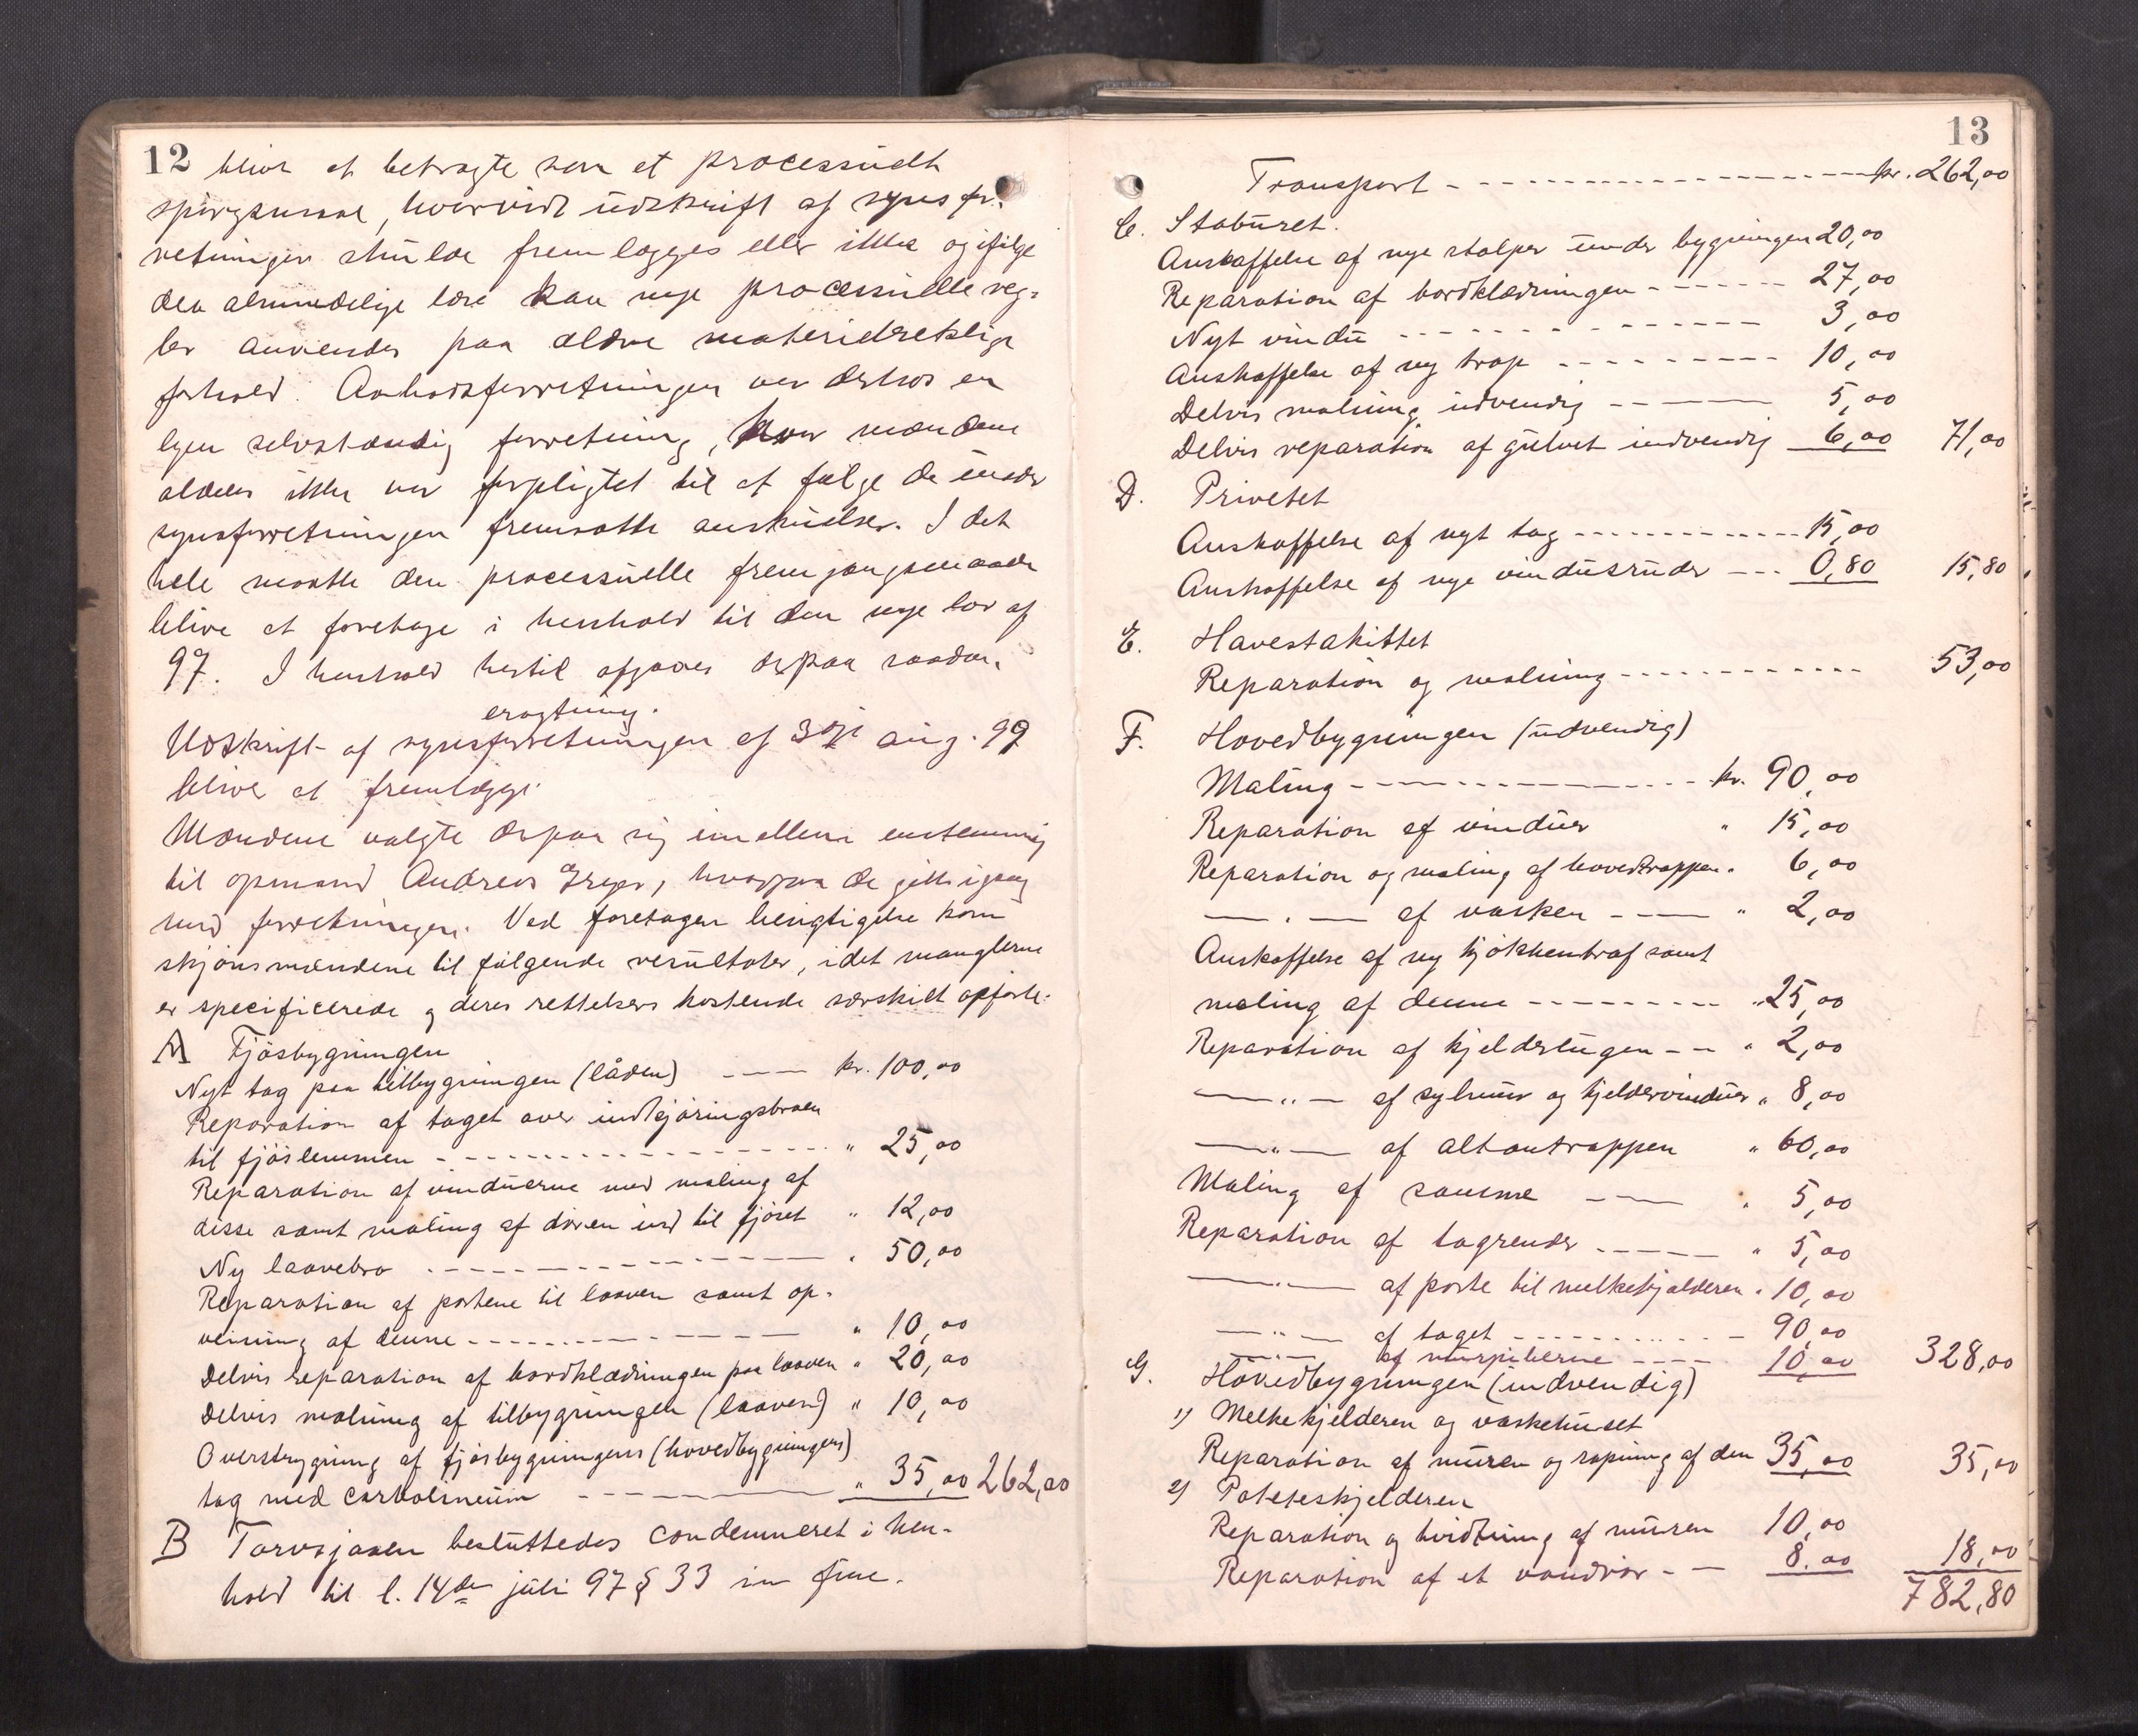 12
bliver at betragte som et processuelt
spørgsmaal, hvorvidt udskrift af synsfor-
retningen skulde fremlægges eller ikke og ifølge
den almindelige lære kan nye processuelle reg-
ler anvendes paa ældre materielretslige
forhold. Aabodsforretningen var derhos en
egen selvstændig forretning, hvor mændene
aldeles ikke var forpligtet til at følge de under
synsforretningen fremsatte anskuelser. I det
hele maatte den processuelle fremgangsmaade
blive at foretage i henhold til den nye lov af
97. I henhold hertil afgaves derpaa saadan
eragtning.
Udskrift af synsforretningen af aug. 99
bliver at fremlægge.
Mændene valgte derpaa sig imellem enstemmig
til opmand Andreas, hvorpaa de gik igang
med forretningen. Ved foretagen besigtigelse kom
skjønsmændene til følgende resultater, idet manglerne
er specificerede og deres rettelsers kostende særskilt opført.
A Fjøsbygningen
Nyt tag paa tilbygningen (låden) ---- kr. 100,00
Reparation af taget over indkjøringsbroen
til fjøslemmen - - - - - - - " 25,00
Reparation af vinduerne med maling af
disse samt maling af døren ind til fjøset " 12,00
Ny laavebro - - - - - - - " 50,00
Reparation af portene til laaven samt op-
veining af denne - - - - - - - " 10,00
Delvis reparation af bordklædningen paa laaven " 20,00
Delvis malning af tilbygningen (laaven) " 10,00
Overstrygning af fjøsbygningens (hovedbygningens)
tag med carbolineum - - - - " 35,00 262,00
B Torvsjaaen besluttedes condemneret i hen-
hold til l. 14de juli 97 § 33 in fine.
13
Transport - - - - - - - kr. 262,00
C. Stabüret.
Anskaffelse af nye stolper under bygningen 20,00
Reparation af bordklædningen - - - - 27,00
Nyt vindu - - - - - - - 3,00
Anskaffelse af ny trap - - - - - 10,00
Delvis malning udvendig - - - - 5,00
Delvis reparation af gulvet indvendig 6,00 71,00
D. Privetet
Anskaffelse af nyt tag - - - - - - 15,00
Anskaffelse af nye vindusruder - - - 0,80 15,80
E. Havestakittet
Reparation og malning - - - - - - 53,00
F. Hovedbygningen (udvendig)
Maling - - - - - - - kr. 90,00
Reparation af vinduer " 15,00
Reparation og maling af hovedtrappen " 6,00
— " — af vasken - - — " 2,00
Anskaffelse af ny kjøkkentrap samt
maling af denne - - - - - - " 25,00
Reparation af kjelderlugen - - " 2,00
— " — af sylmur og kjeldervinduer " 8,00
— " — af altantrappen " 60,00
Maling af samme - - — " 5,00
Reparation af tagrender - - - - " 5,00
— " — af porte til melkekjelderen " 10,00
— " — af taget - - - - - - 90,00
— " — af murpiberne - - - - 10,00 328,00
G. Hovedbygningen (indvendig)
1) Melkekjelderen og vaskehuset
Reparation af muren og rapning af den 35,00 35,00
2) Poteteskjelderen
Reparation og hvidtning af muren 10,00
Reparation af et vandrør - — 8.00 18,00
782,80